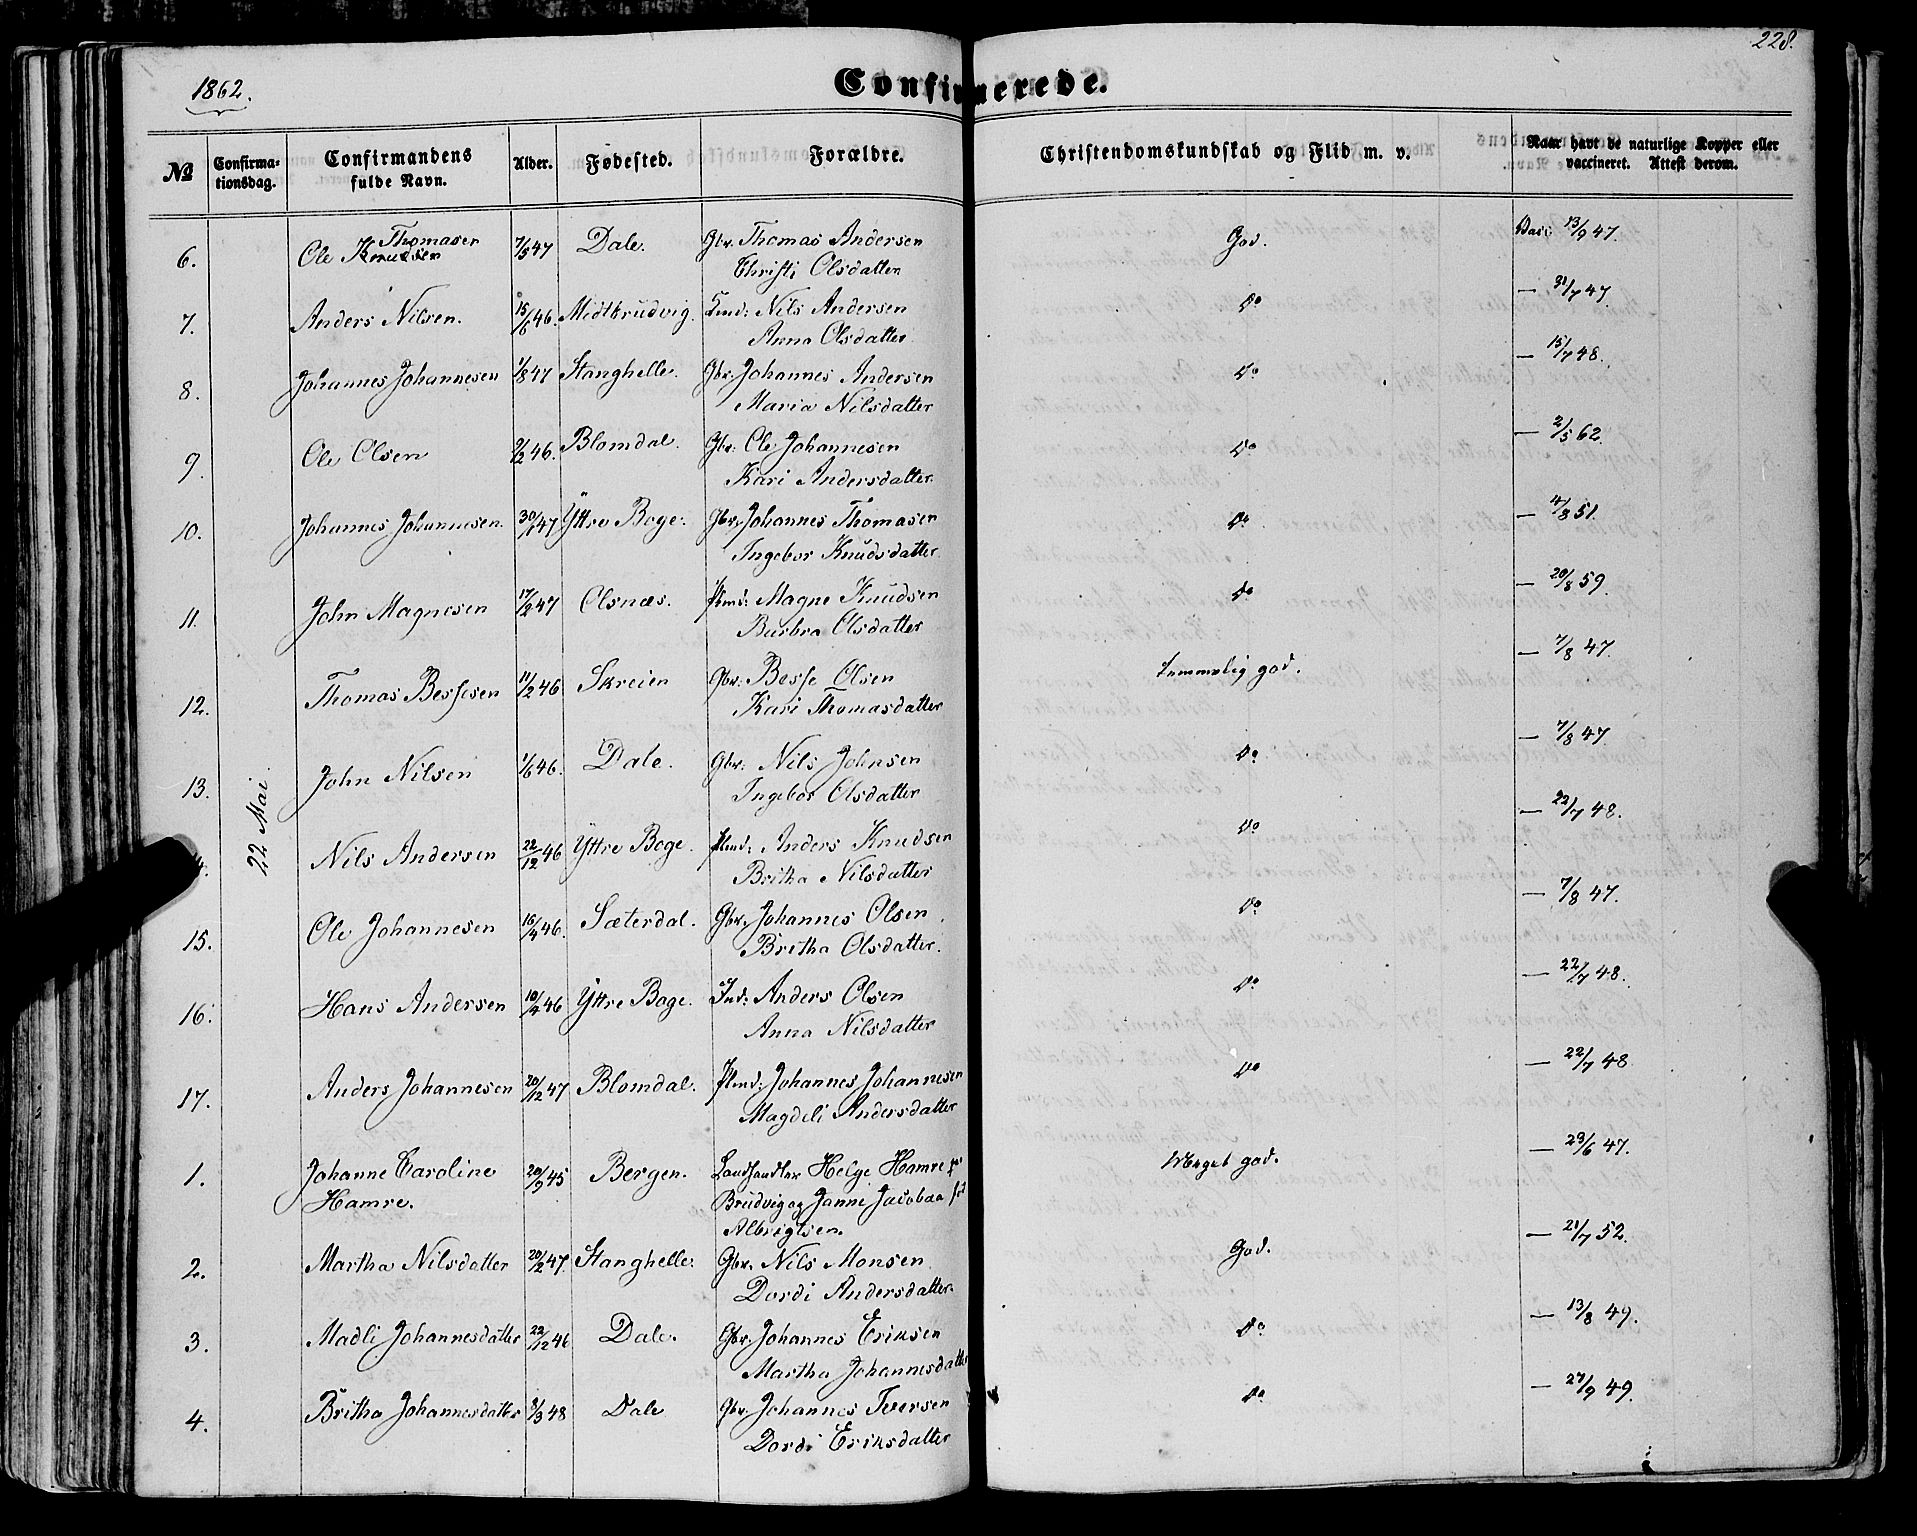 228.
1862.
Confirmerede.
№ Confirma-tionsdag. Confirmandens fulde Navn. Alder. Fødested. Forældre. Christendomskundskab og Flid m. v. Naar havt de naturlige Kopper eller vaccineret. Attest derom.
22 Mai
6. Ole Thomasen 7/5 47 Dale. Gbr. Thomas Andersen God. 13/9 47.
Knudsen Christi Olsdatter
7. Anders Nilsen. 15/6 46. Midtbrudvig. Nils Andersen Do — 31/7 47.
Anna Olsdatter
8. Johannes Johannesen 1/8 47 Stanghelle. Gbr. Johannes Andersen Do — 15/7 48.
Maria Nilsdatter
9. Ole Olsen 9/2 46. Blomdal. Gbr: Ole Johannesen Do — 2/5 62.
Kari Andersdatter
10. Johannes Johannesen. 30/1 47 Yttre Boge. Gbr. Johannes Thomasen Do — 4/8 51.
Ingebor Knudsdatter.
11. John Magnesen 17/2 47 Olsnæs. Plmd: Magne Knudsen Do — 20/8 59.
Barbra Olsdatter
12. Thomas Bessesen 11/2 46 Skreien Gbr: Besse Olsen temmelig god. — 7/8 47.
Kari Thomasdatter
13. John Nilsen 1/6 46. Dale. Gbr: Nils Johnsen Do — 7/8 47.
Ingebor Olsdatter
Nils Andersen 22/12 46 Yttre Boge. Plmd: Anders Knudsen Do — 22/7 48.
Britha Nilsdatter
15. Ole Johannesen 16/4 46. Sæterdal. Gbr. Johannes Olsen Do — 7/8 47.
Britha Olsdatter.
16. Hans Andersen 10/4 46 Yttre Boge. Ind: Anders Olsen Do — 22/7 48.
Anna Nilsdatter
17. Anders Johannesen 20/12 47 Blomdal. Plmd: Johannes Johannesen Do — 22/7 48
Magdeli Andersdatter
1. Johanne Caroline 20/9 45 Bergen. Landhandler Helge Hamre Meget god. — 23/6 47.
Hamre. Brudvig og Janni Jacobaa
Albrigtsen.
2. Martha Nilsdatter 20/2 47. Stanghelle. Gbr. Nils Monsen God. — 21/7 52.
Dordi Andersdatter.
3. Madli Johannesdatter 22/12 46 Dale. Gbr. Johannes Eriksen Do — 13/8 49.
Martha Johannesdatter
4. Britha Johannesdatter 8/3 48 Dale Gbr. Johannes Iversen Do — 27/9 49.
Dordi Eriksdatter